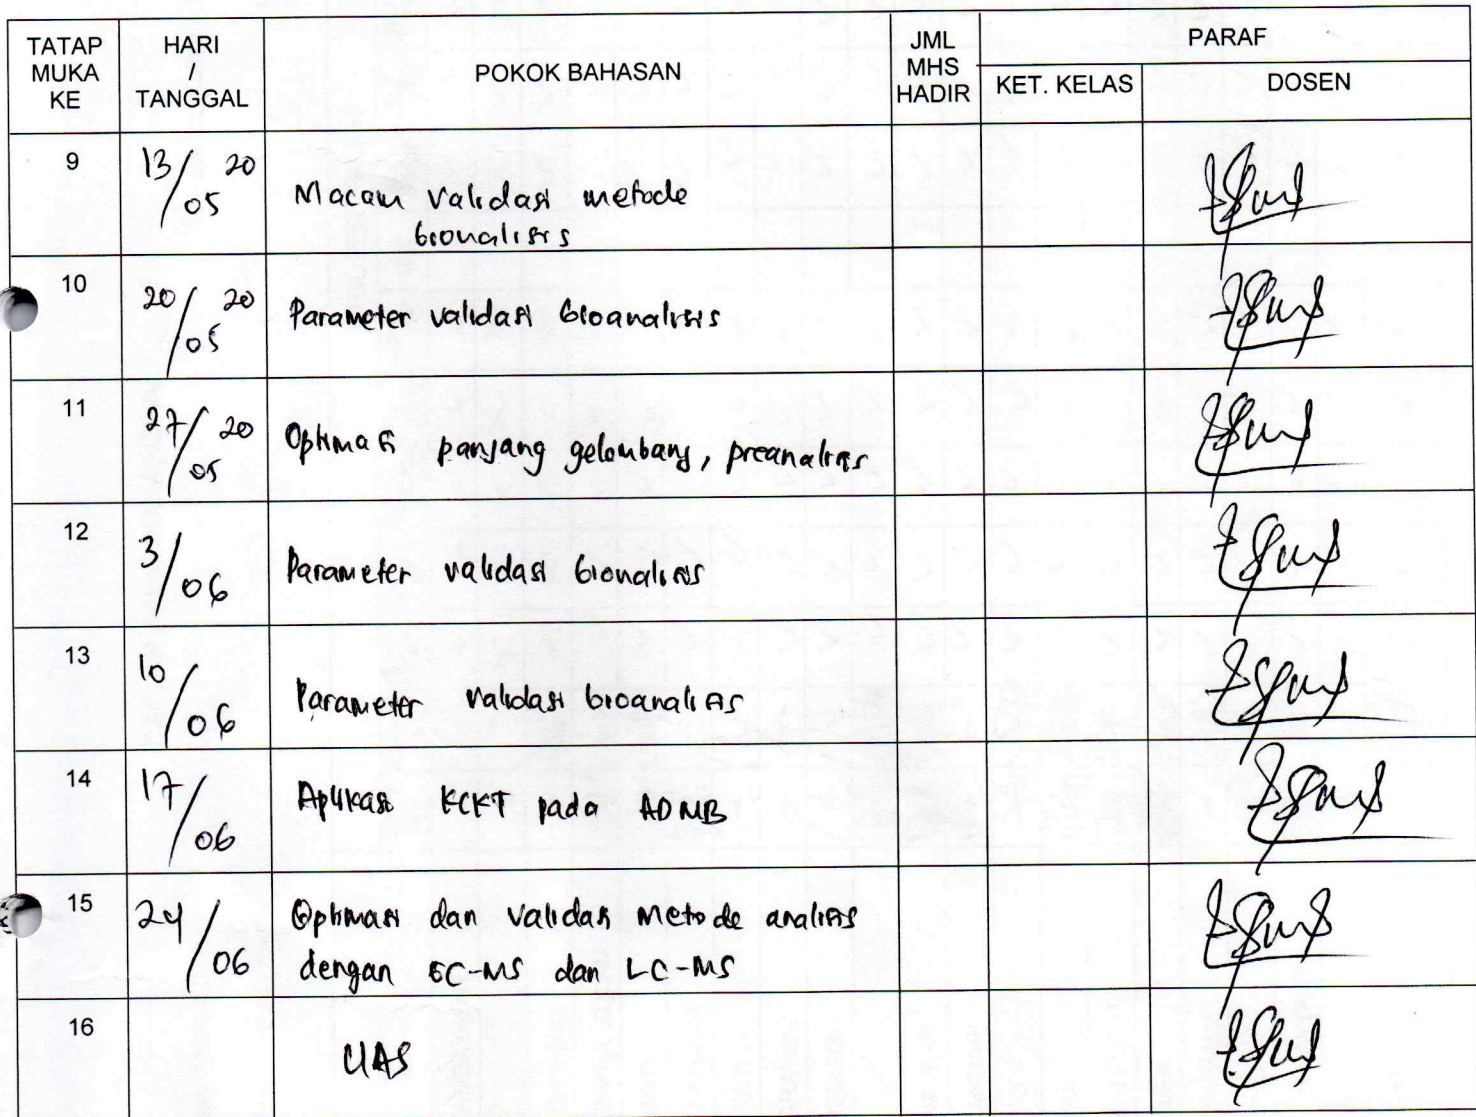 TATAP MUKA KE
HARI / TANGGAL
POKOK BAHASAN
JML MHS HADIR
PARAF
KET. KELAS
DOSEN
9
13/05 20
Macam validasi metode
bionalisis
10
20/05 20
Parameter validasi bioanalisis
11
27/05 20
Optimasi panjang gelombang, preanalisis
12
3/06
Parameter validasi bionalisis
13
10/06
Parameter validasi bioanalisis
14
17/06
Aplikasi KCKT pada ADMB
15
24/06
Optimasi dan validasi metode analisis
dengan GC-MS dan LC-MS
16
UAS